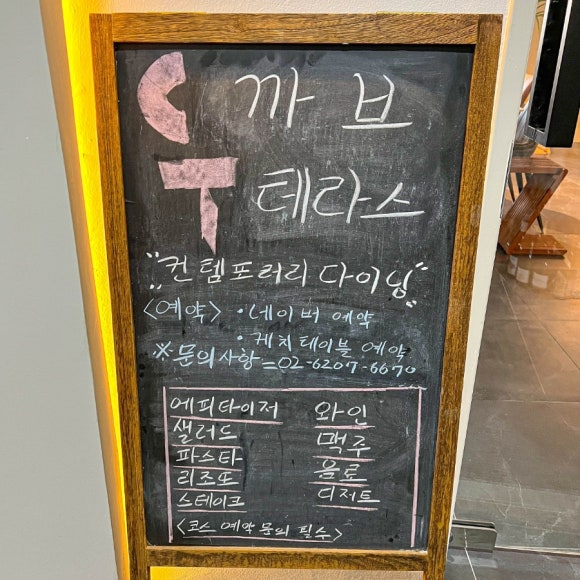 C 까브
T 테라스
컨템포러리 다이닝
<예약> · 네이버 예약
· 캐치테이블 예약
※문의사항=02-6207-6670
에피타이저 와인
샐러드 맥주
파스타 음료
리조또 디저트
스테이크
<코스 예약 문의 필수>